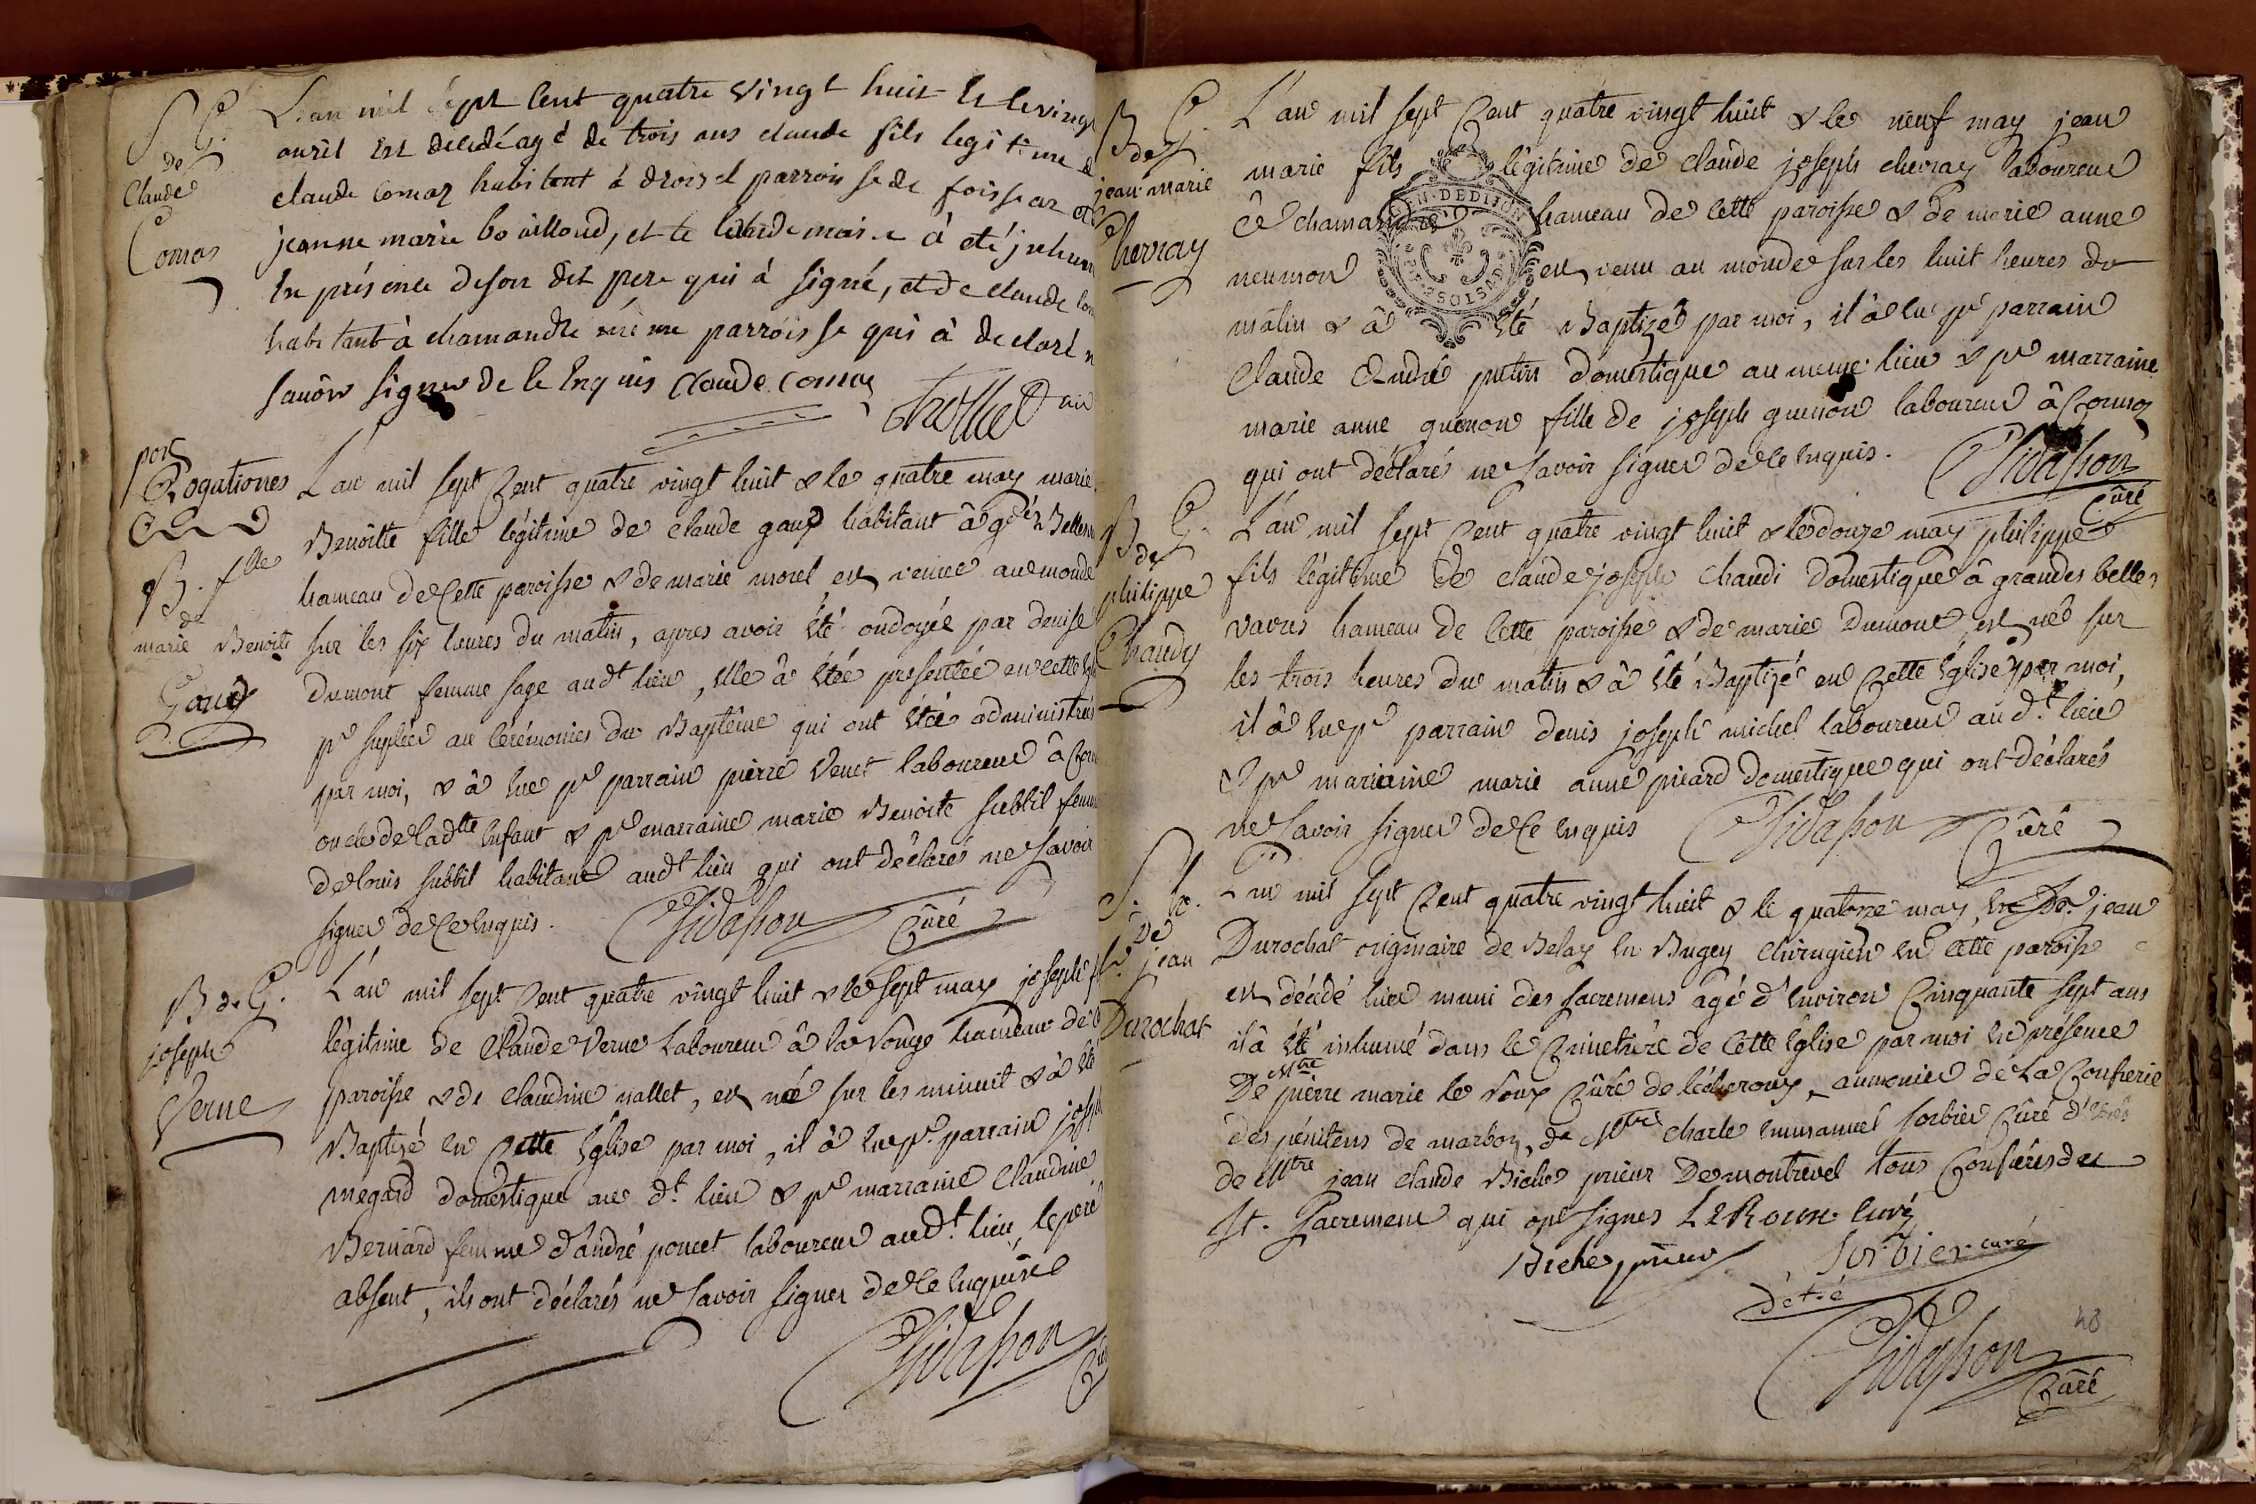 S. G.
de
Claude
Comas
L'an mil sept Cent quatre vingt huit et le vingt
avril est decedé agé de trois ans claude fils legitime de
claude comaz habitant à droisel parroisse de foissiat et de
jeanne marie bouilloud, et le landemain a été inhum
en présence de son dit pere qui à signé, et de claude com
habitant à chamandre même parroisse qui à declaré n
savoir signer de ce enquis claude comaz
Chossat vic
post
Rogationes
B. flle
de
marie Benoite
Gaud
L'an mil sept Cent quatre vingt huit & le quatre may marie
Benoitte fille légitime de claude gaud habitant â gdes Bellesv
hameau de Cette paroisse & de marie morel est venue au monde
sur les six heures du matin, apres avoir été ondoyée par denise
Dumont femme sage aud.t lieu, elle â étée presentée en cette Egl
pr supléer au Cerémonies du Baptême qui ont étée administrées
par moi, & â eue pr parrain pierre Venet laboureur â Corm
oncle de lad.tte Enfant & pr marraine marie Benoite subtil femme
de louis subtil habitant aud.t lieu qui ont déclarés ne savoir
signer de Ce enquis. Chidasson Cûré
B de G.
joseph
Verne
L'an mil sept Cent quatre vingt huit & le sept may joseph f
légitime de Claude Verne Laboureur â la vouge hameau de C
paroisse & de claudine nallet, est né sur les minuit & à été
Baptizé en Cette Eglise par moi, il â eu pr. parrain josep
megard domestique au d.t lieu & pr marraine Claudine
Bernard femme d'andré poncet laboureur aud.t lieu, le pere
absent, ils ont déclarés ne savoir signer de Ce enquérré
Chidasson Cûré
B G.
de
jean marie
Chevray
L'an mil sept Cent quatre vingt huit & le neuf may jean
marie fils légitime de claude joseph chevray laboureur
â chamandre hameau de Cette paroisse & de marie anne
neumon est venu au monde sur les huit heures du
matin & â été Baptizé par moi, il â eu pr parrain
Claude André putin domestique au meme lieu & pr marraine
marie anne guenon fille de joseph guenon laboureur â Cormoz
qui ont déclarés ne savoir signer de Ce enquis. Chidasson
Cûré
GEN. DE DIJON
B G.
de
philippe
Chaudy
L'an mil sept Cent quatre vingt huit & le douze may philippe
fils légitime de claude joseph chaudi domestique â grandes belles
vavres hameau de Cette paroisse & de marie Dumont est né sur
les trois heures du matin & â été Baptizé en Cette Église par moi,
il â eu pr parrain denis joseph michel laboureur au d.t lieu
& pr marraine marie anne picard domestique qui ont déclarés
ne savoir signer de Ce enquis Chidasson Cûré
S. h.
De
Sr. jean
Durochat
L'an mil sept Cent quatre vingt huit & le quatorze may, le Sr. jean
Durochat originaire de Belay en Bugey chirugien en Cette paroisse
est décédé hier muni des sacremens agé d'environ Cinquante sept ans
il â été inhumé dans le Cimetiere de Cette Eglise par moi en présence
De Mtre pierre marie le roux Cûré de lécheroux, aumonier de La Confrerie
des pénitens de marboz, de Mtre charle emmanuel sorbier Cûré d'étrés
de Mtre jean claude Biche prieur De montrevel tous Confrères du
St. Sacrement qui ont signes LeRoux Curé
Biche prieur Sorbier curé
d'etré
Chidasson
Cûré
48